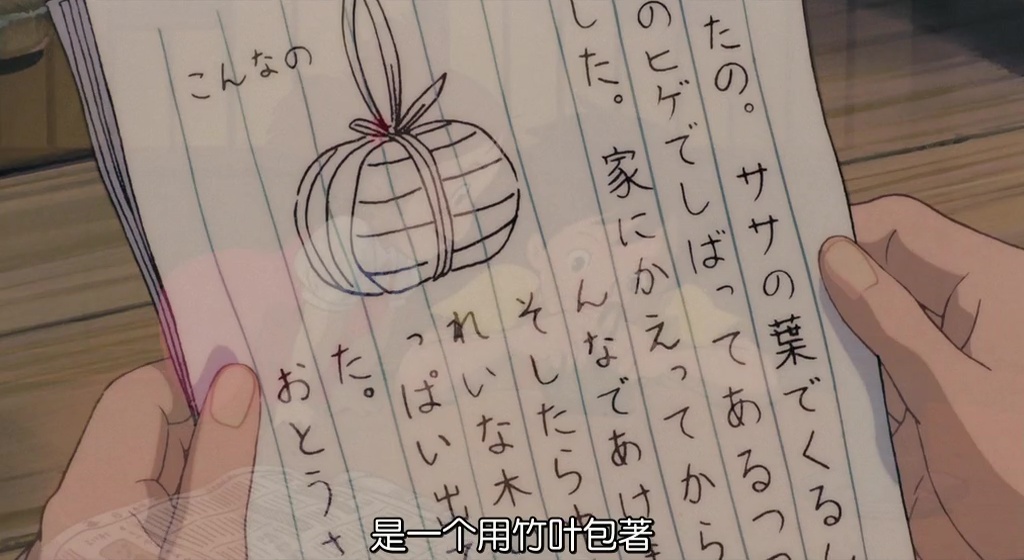 たの。ササの葉でくるん
のヒゲでしばってあるつ
した。家にかえってから
んなであけ
そしたら
れいな木
っぱい出
た。
こんなの
おとうさ
是一个用竹叶包著